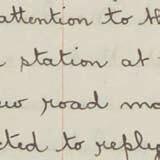 attention to th
station at
road mo
to reply